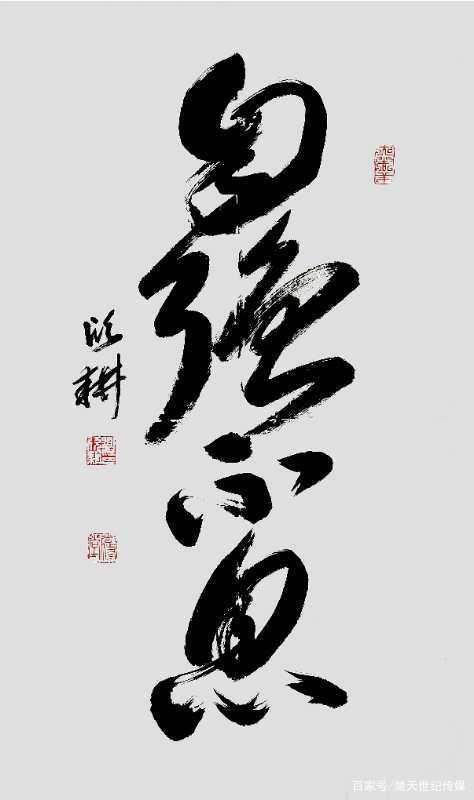 自强不息
耕
百家号/楚天世纪传媒